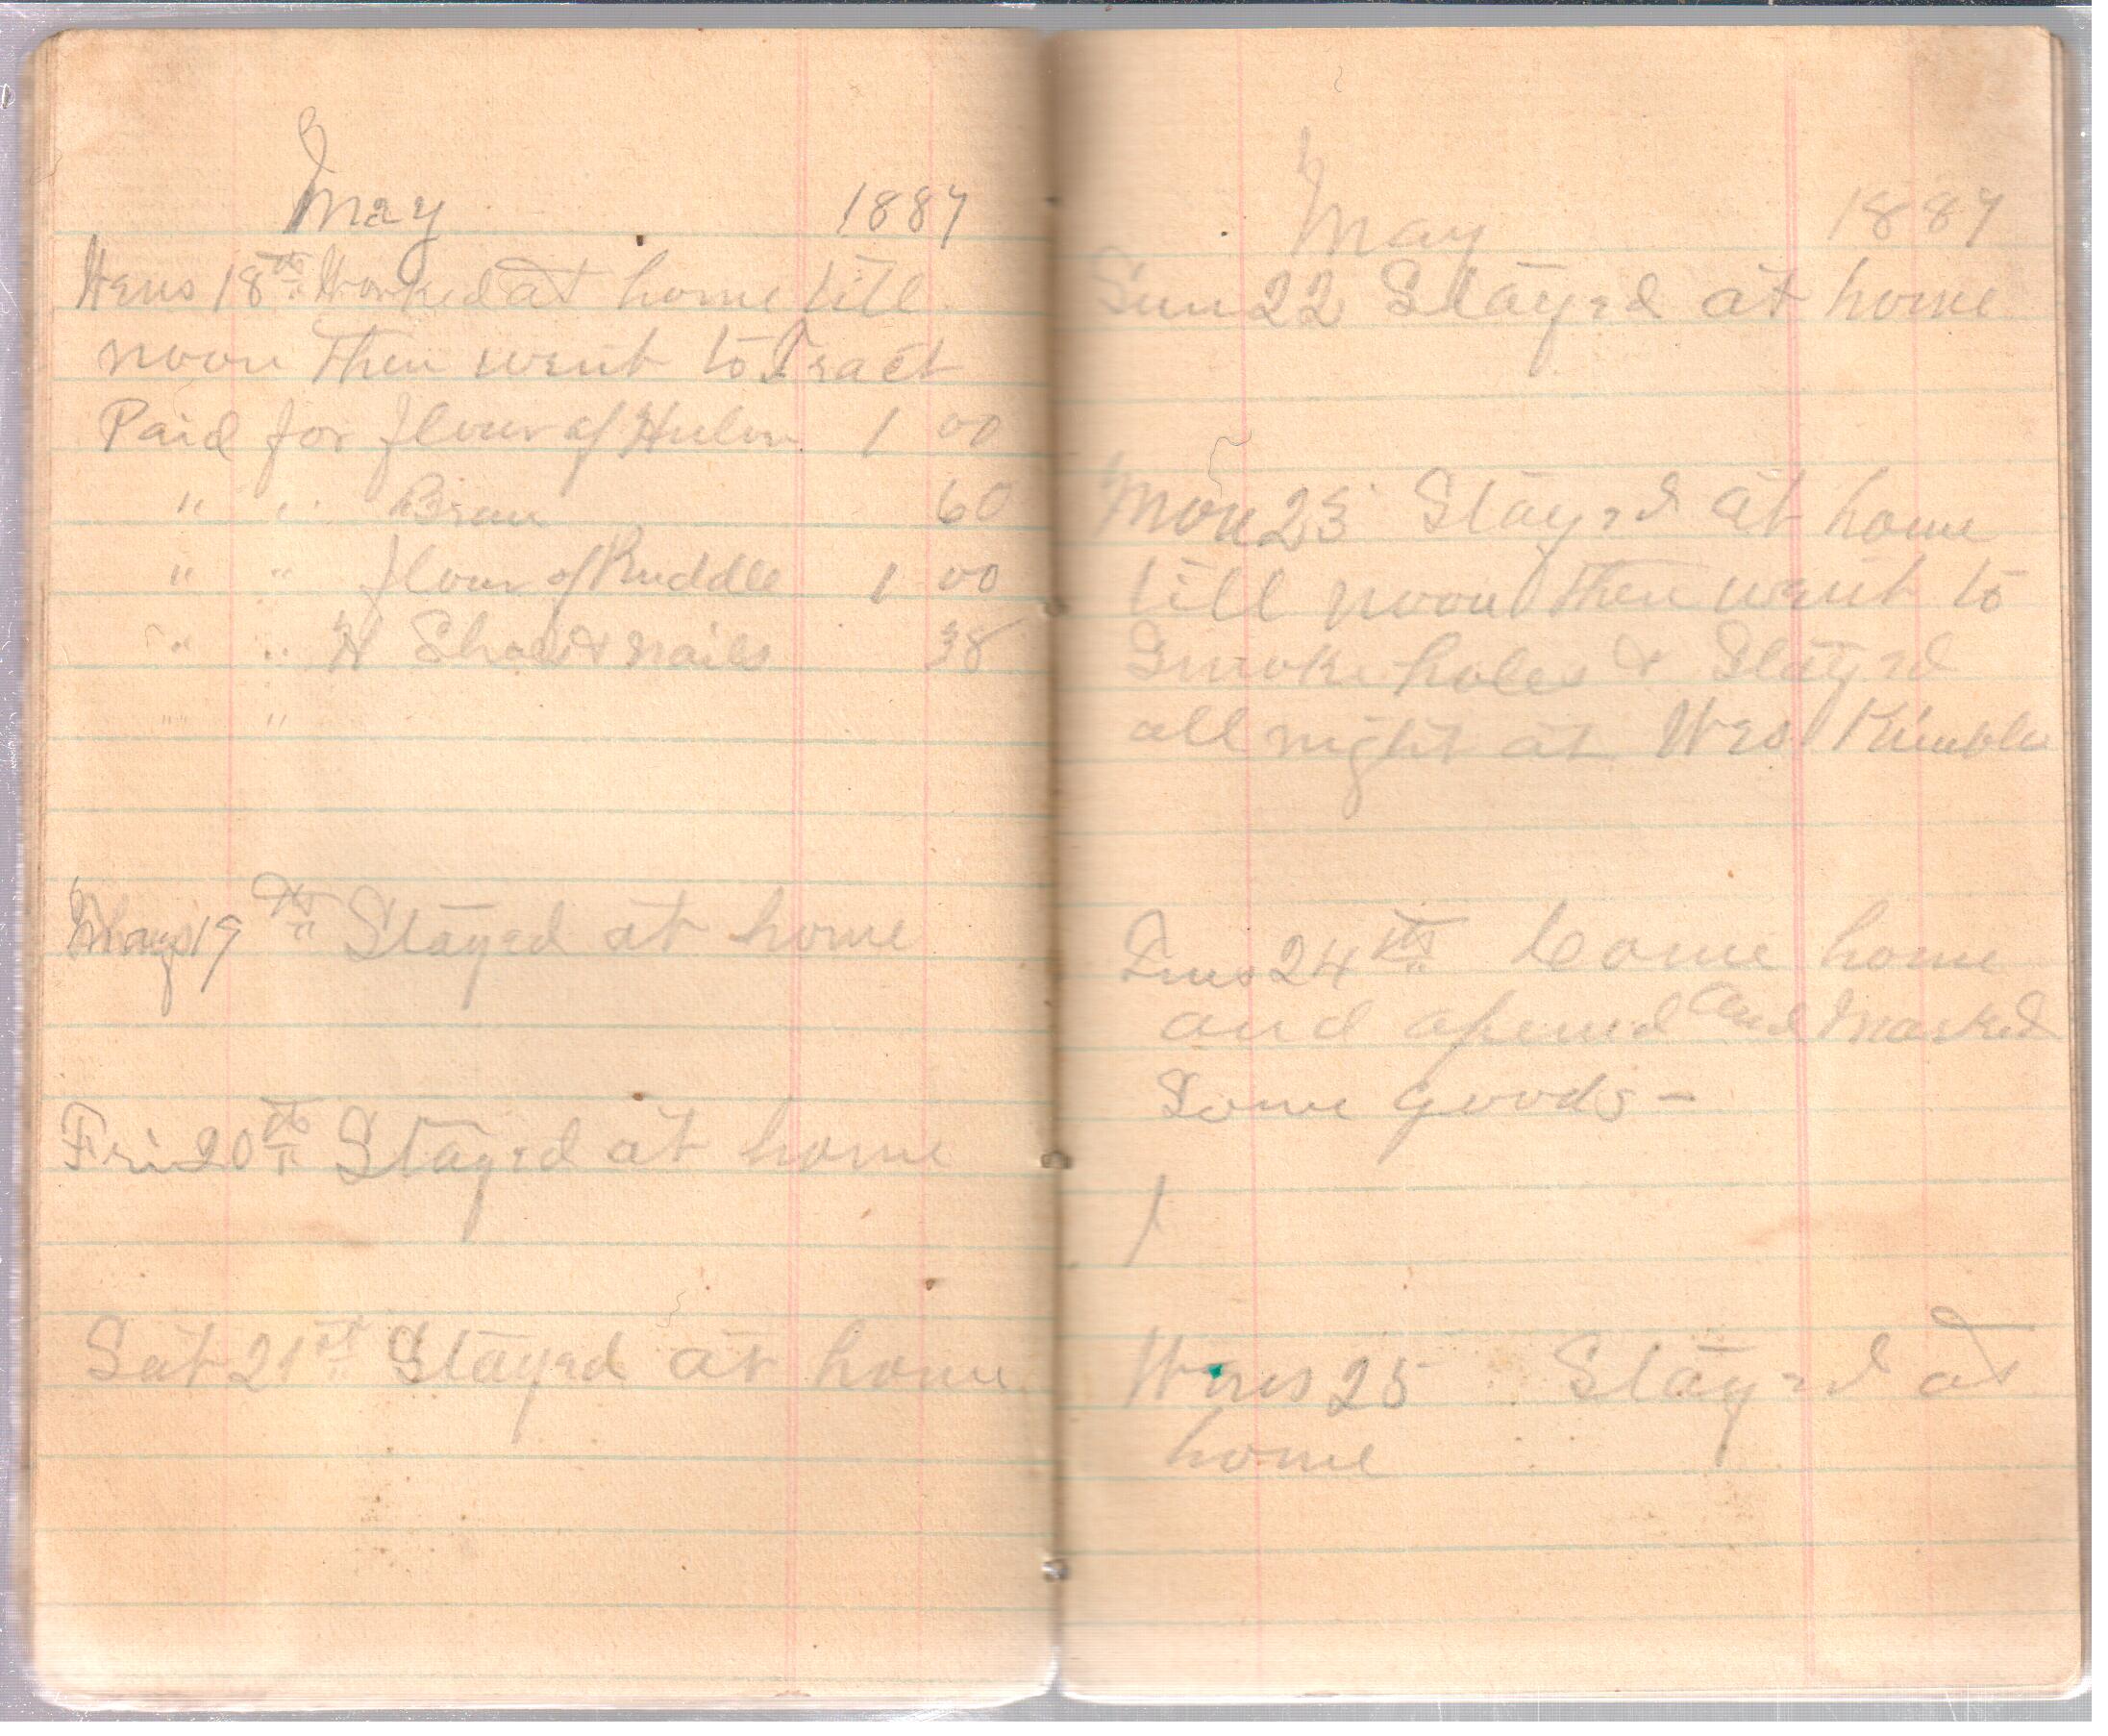 May 1887
Wens 18th Worked at home till
noon Then went to Tract
Paid for flour of 1 00
" " Bran 60
" " flour of Ruddle 1 00
" " H Shoes & nails 38
" "
19th Stayed at home
Fri 20th Stayed at home
Sat 21st Stayed at home
May 1887
Sun 22 Stayed at home
Mon 23 Stayed at home
till noon Then went to
Smoke holes & Stayed
all night at Wes Kimble
Tues 24th Come home
and opened and marked
Some goods -
Wens 25 Stayed at
home